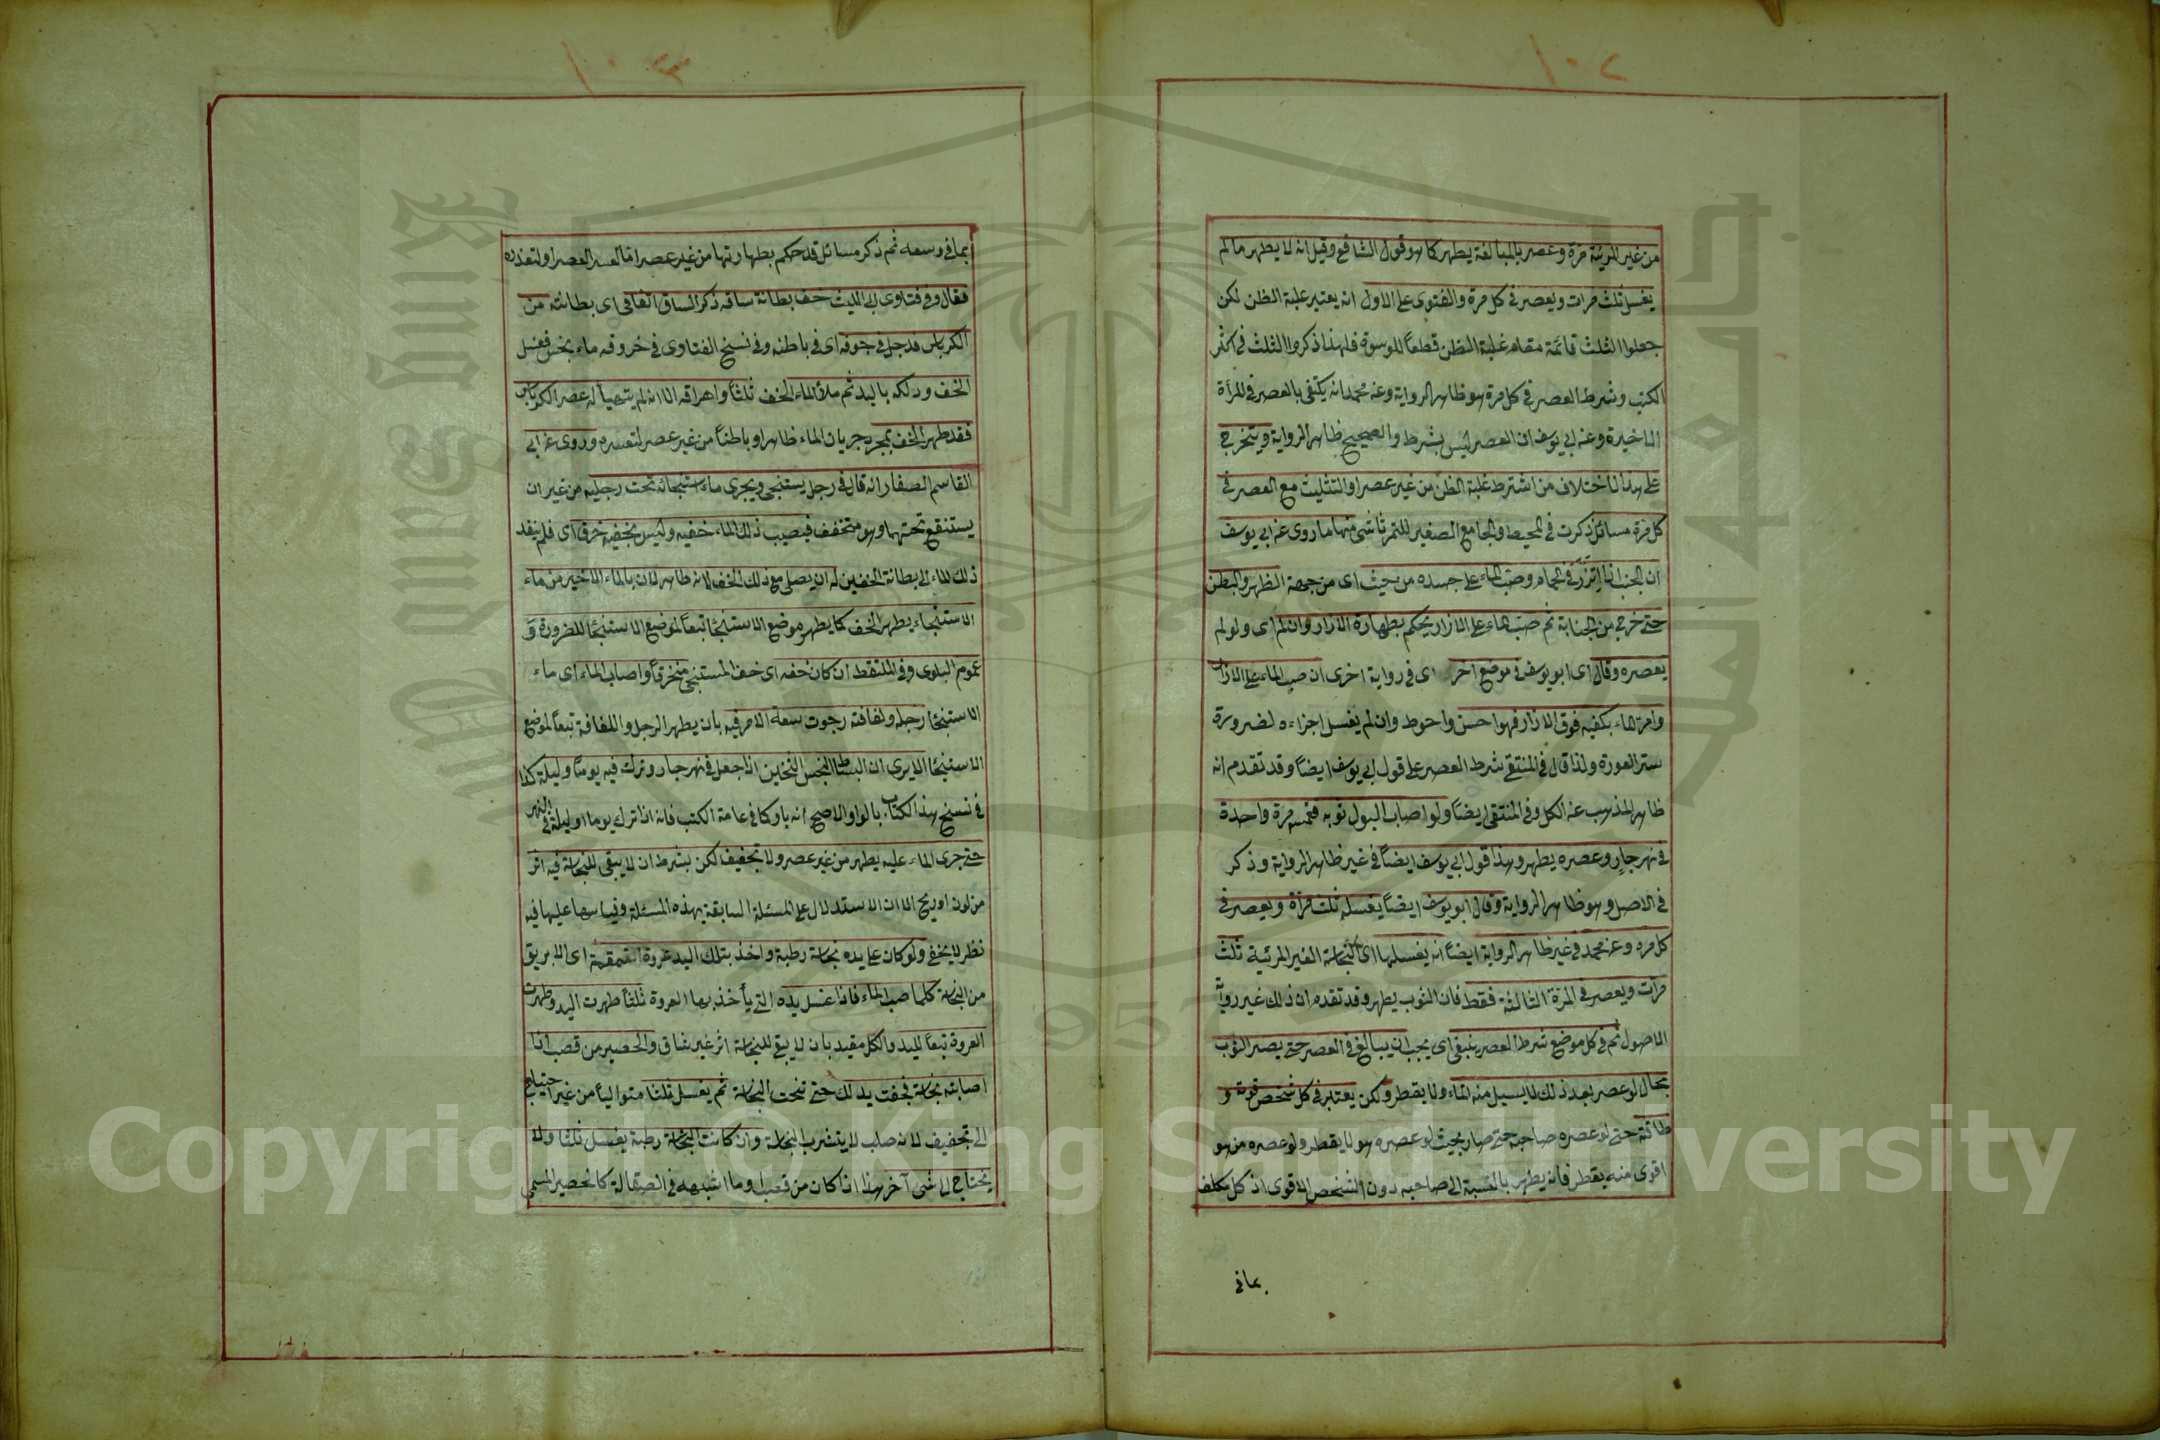 ١٠٢
من غير المرئية مرة وعصر بالمبالغة يطهر كما هو قول الشافعي وقيل انه لا يطهر ما لم
يغسل ثلث مرات ويعصر في كل مرة والفتوى على الاول انه يعتبر غلبة الظن لكن
جعلوا الثلث قائمة مقام غلبة الظن قطعاً للوسوسة فلهذا ذكروا الثلث في اكثر
الكتب وشرط العصر في كل مرة هو ظاهر الرواية وعن محمد انه يكتفى بالعصر في المرأة
الاخيرة وعن ابي يوسف ان العصر ليس بشرط والصحيح ظاهر الرواية ويتخرج
على هذا الاختلاف من اشترط غلبة الظن من غير عصر او التثليث مع العصر في
كل مرة مسائل ذكرت في المحيط والجامع الصغير للتمرتاشي منها ما روى عن ابي يوسف
ان الجنب اذا اتزر في الحمام وصب الماء على جسده من حيث اى من جهة الظهر والبطن
حتى خرج من الجنابة ثم صب الماء على الازار يحكم بطهارة الازار وان لم اى ولو لم
يعصره وقال اى ابو يوسف في موضع اخر اى في رواية اخرى ان صب الماء على الازار
وامر الماء بكفيه فوق الازار فهو احسن واحوط وان لم يغسل اجزاءه لضرورة
ستر العورة ولذا قال في المنتقى شرط العصر على قول ابي يوسف ايضاً وقد تقدم انه
ظاهر المذهب عن الكل وفي المنتقى ايضاً ولو اصاب البول ثوبه فغمسه مرة واحدة
في نهر جارٍ وعصره يطهر وهذا قول ابي يوسف ايضاً في غير ظاهر الرواية وذكر
في الاصل وهو ظاهر الرواية وقال ابو يوسف ايضاً يغسله ثلث مرة ويعصر في
كل مره وعن محمد في غير ظاهر الرواية ايضاً انه يغسلها اى النجاسة الغير المرئية ثلث
مرات ويعصر في المرة الثالثة فقط فان الثوب يطهر وقد تقدم ان ذلك غير رواية
الاصول ثم في كل موضع شرط العصر ينبغى اى يجب ان يبالغ في العصر حتى يصير الثوب
بحال لو عصر بعد ذلك لا يسيل منه الماء ولا يقطر ولكن يعتبر في كل شخص قوته و
طاقته حتى لو عصره صاحبه حتى صار بحيث لو عصره هو لا يقطر ولو عصره من هو
اقوى منه يقطر فانه يطهر بالنسبة الى صاحبه دون الشخص الاقوى اذ كل مكلف
بما في
١٠٣
بما في وسعه ثم ذكر مسائل قد حكم بطهارتها من غير عصر اما لعسر العصر او لتعذره
فقال وفي فتاوى ابي الليث خف بطانة ساقه ذكر الساق اتفاقى اى بطانته من
الكرباس فدخل في جوفه اى في باطنه وفي نسخ الفتاوى في خروقه ماء نجس فغسل
الخف ودلكه باليد ثم ملأ الماء الخف ثلثاً واهراقه الا انه لم يتهيأ له عصر الكرباس
فقد طهر الخف بمجرد جريان الماء ظاهرا وباطناً من غير عصر لتعسره وروى عن ابي
القاسم الصفار انه قال في رجل يستنجى ويجرى ماء استنجائه تحت رجليه من غير ان
يستنقع تحتهما وهو متخفف فيصيب ذلك الماء خفيه وليس بخفيه خرق اى فلم ينفذ
ذلك الماء الى بطانة الخفين له ان يصلى مع ذلك الخف لانه طاهر لان بالماء الاخير من ماء
الاستنجاء يطهر الخف كما يطهر موضع الاستنجاء تبعاً لموضع الاستنجاء للضرورة و
عموم البلوى وفي الملتقط ان كان خفه اى خف المستنجى منخرقاً واصاب الماء اى ماء
الاستنجاء رجله ولفافته رجوت سعة الامر فيه بان يطهر الرجل واللفافة تبعاً لموضع
الاستنجاء الا يرى ان البساط النجس الثخين اذا جعل في نهر جار وترك فيه يوماً وليلة كذا
في نسخ هذا الكتاب بالواو والاصح انه باو كما في عامة الكتب فانه اذا ترك يوما او ليلة في النهر
حتى جرى الماء عليه يطهر من غير عصر ولا تجفيف لكن بشرط ان لا يبقى للنجاسة فيه اثر
من لون او ريح الا ان الاستدلال على المسئلة السابقة بهذه المسئلة وقياسها عليها فيه
نظر لا يخفى ولو كان على يده نجاسة رطبة واخذ بتلك اليد عروة القمقمة اى الابريق
من النجاسة كلما صب الماء فاذا غسل يده التي يأخذ بها العروة ثلثاً طهرت اليد وطهرت
العروة تبعاً لليد والكل مقيد بان لا يبقى للنجاسة اثر غير شاق والحصير من قصب اذا
اصابته نجاسة فجفت يدلك حتى تنحت النجاسة ثم يغسل ثلثا متوالياً من غير احتياج
الى تجفيف لانه صلب لا يتشرب النجاسة وان كانت النجاسة رطبة يغسل ثلثا ولا
يحتاج الى شى آخر هذا اذا كان من قصب او ما اشبهه في الصقالة كالحصير المسمى
Copyright © King Saud University
King Saud University
1957